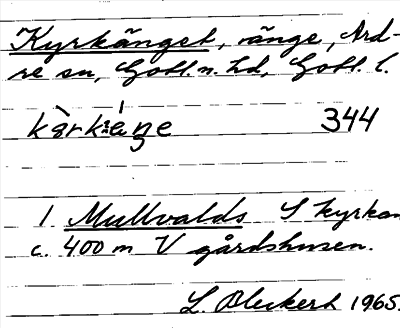 Kyrkänget, vänge, Ard-
re sn, Gotl. n. hd, Gotl. l.
344
1 Mullvalds S kyrkan
c. 400 m V gårdshusen.
L. Oluckert 1965.